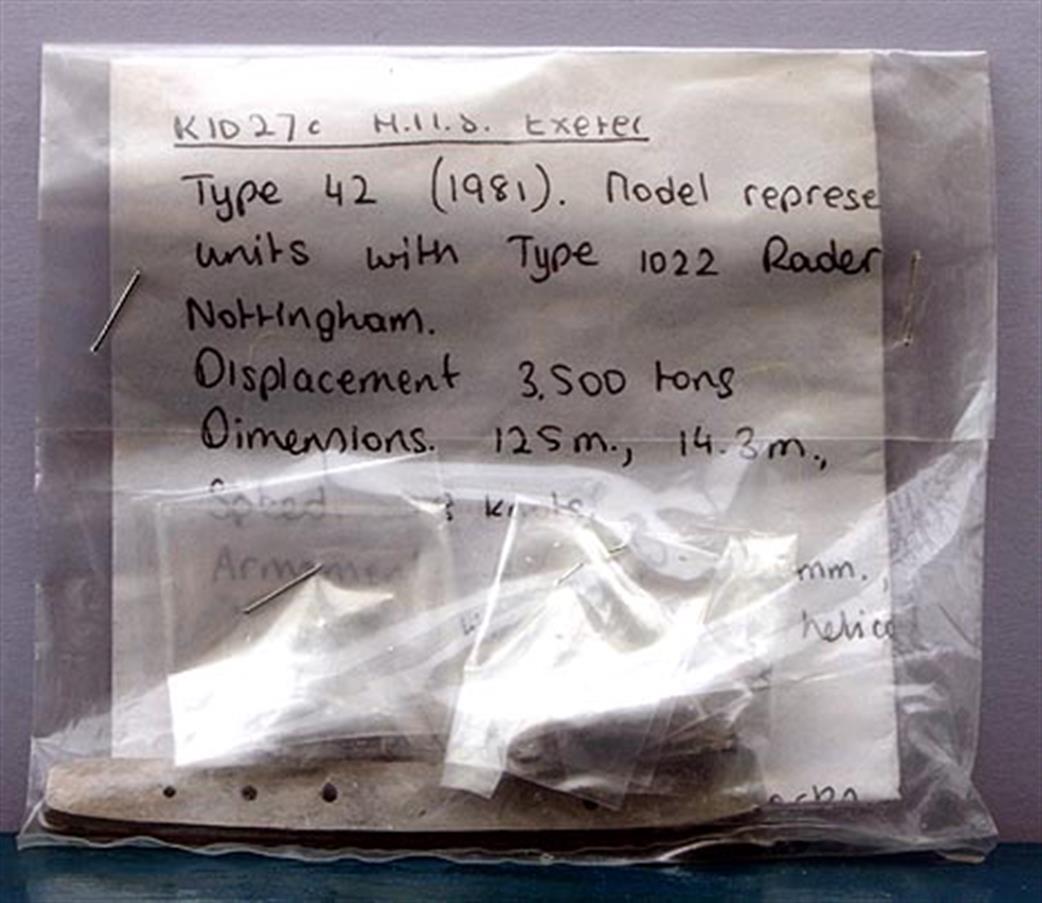 K1D27c H.M.S. Exeter
Type 42 (1981). Model represe
units with Type 1022 Rader
Nottingham.
Displacement 3,500 tons
Dimensions. 125m., 14.3m.,
Speed. knots
Armament mm.,
helico